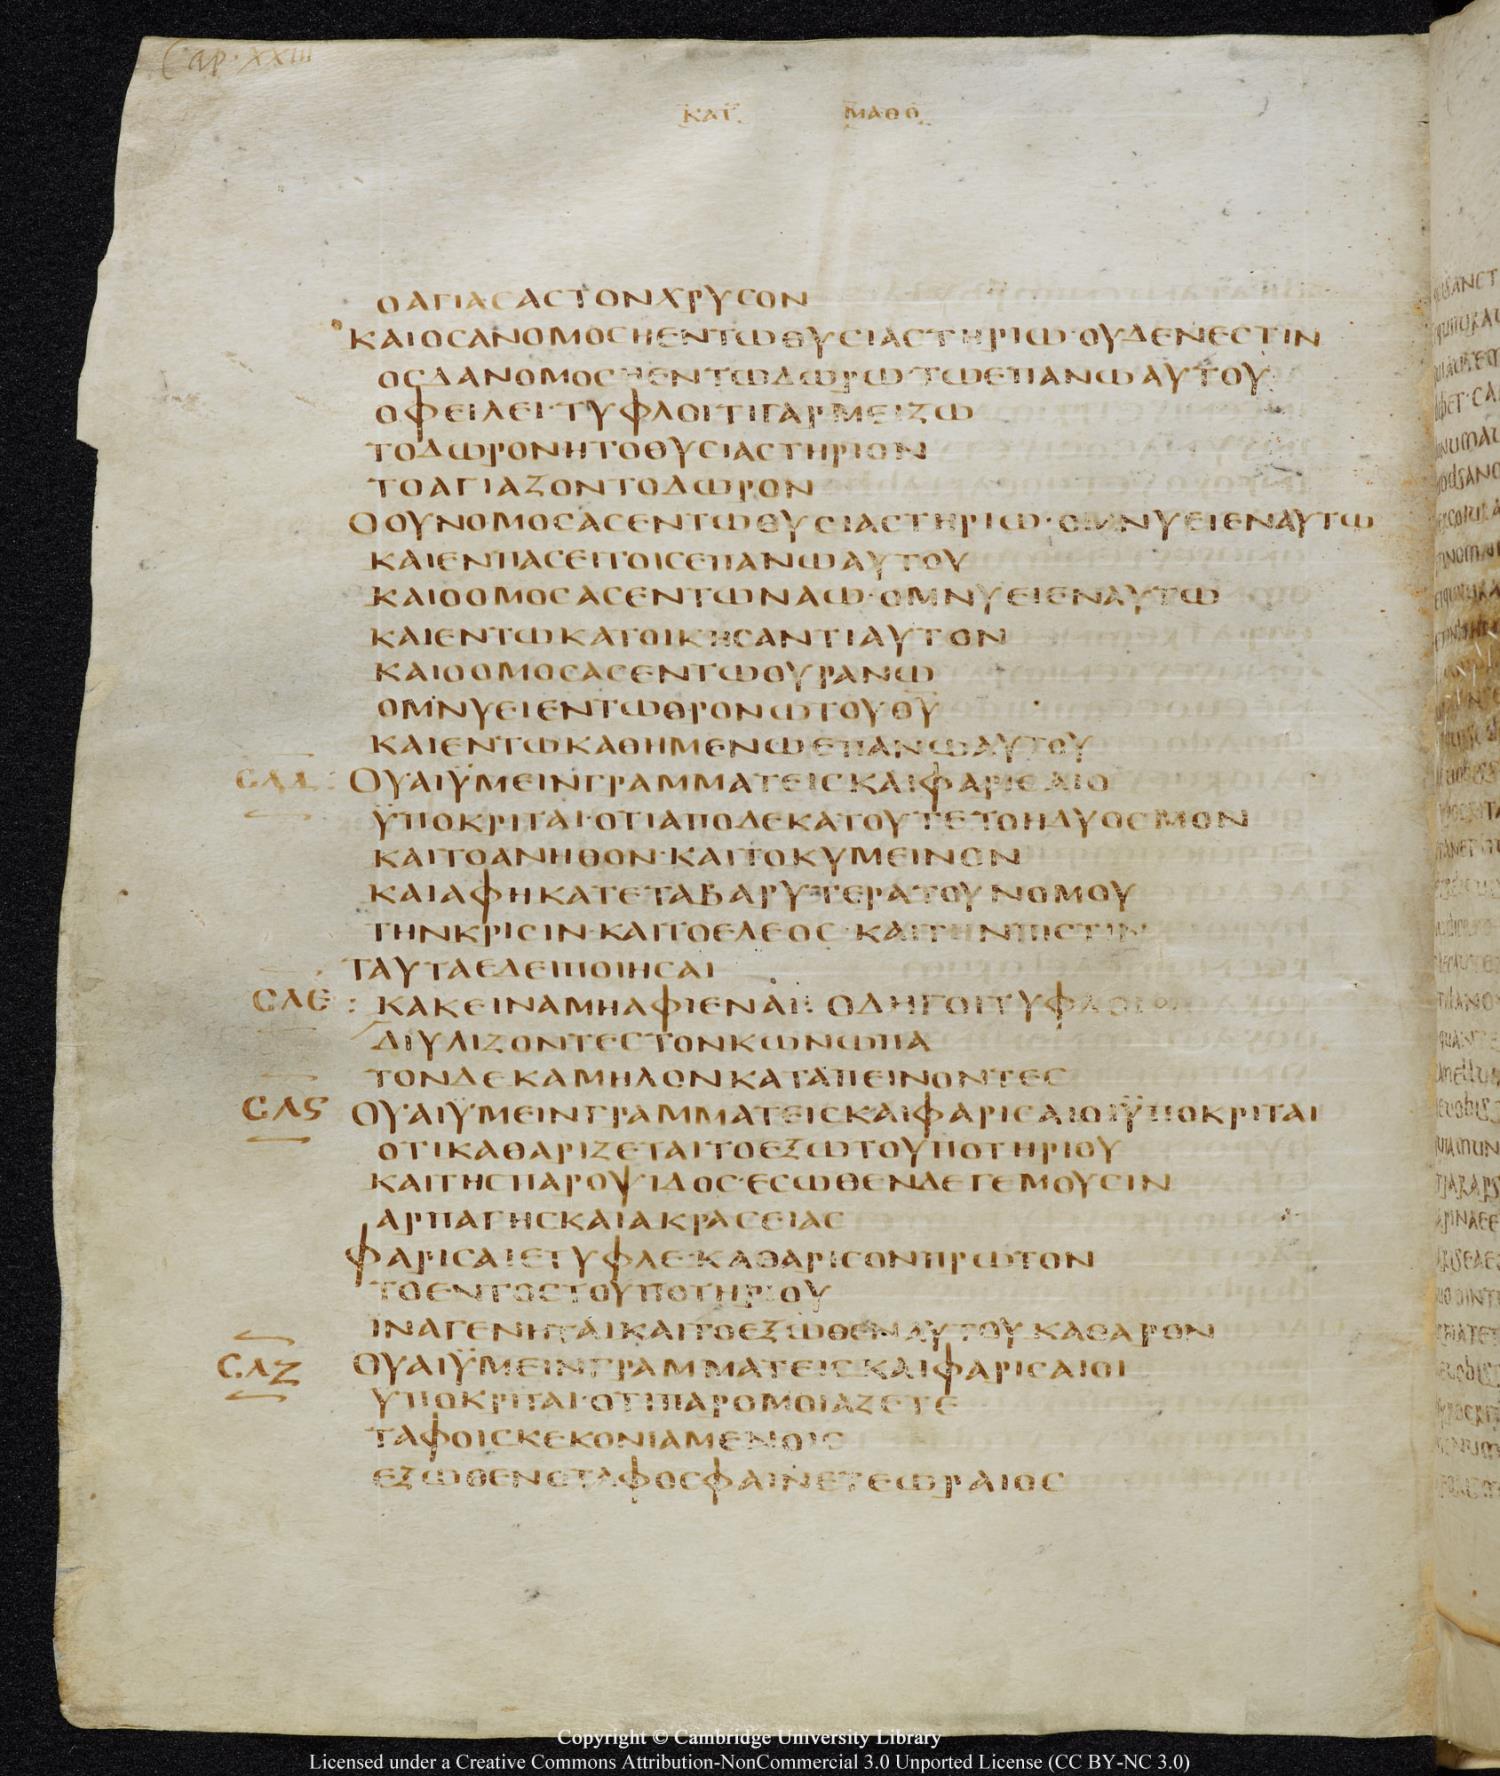 Cap. XXIII
ΚΑΤ ΜΑΘΘ
ΟΑΓΙΑCΑCΤΟΝΧΡΥCΟΝ
ΚΑΙΟCΑΝΟΜΟCΗΕΝΤΩΘΥCΙΑCΤΗΡΙΩ·ΟΥΔΕΝΕCΤΙΝ
ΟCΔΑΝΟΜΟCΗΕΝΤΩΔΩΡΩ·ΤΩΕΠΑΝΩΑΥΤΟΥ
ΟΦΕΙΛΕΙ·ΤΥΦΛΟΙΤΙΓΑΡΜΕΙΖΩ
ΤΟΔΩΡΟΝΗΤΟΘΥCΙΑCΤΗΡΙΟΝ
ΤΟΑΓΙΑΖΟΝΤΟΔΩΡΟΝ
ΟΟΥΝΟΜΟCΑCΕΝΤΩΘΥCΙΑCΤΗΡΙΩ·ΟΜΝΥΕΙΕΝΑΥΤΩ
ΚΑΙΕΝΠΑCΕΙΤΟΙCΕΠΑΝΩΑΥΤΟΥ
ΚΑΙΟΟΜΟCΑCΕΝΤΩΝΑΩ·ΟΜΝΥΕΙΕΝΑΥΤΩ
ΚΑΙΕΝΤΩΚΑΤΟΙΚΗCΑΝΤΙΑΥΤΟΝ
ΚΑΙΟΟΜΟCΑCΕΝΤΩΟΥΡΑΝΩ
ΟΜΝΥΕΙΕΝΤΩΘΡΟΝΩΤΟΥΘΥ
ΚΑΙΕΝΤΩΚΑΘΗΜΕΝΩΕΠΑΝΩΑΥΤΟΥ
CΛΔ: ΟΥΑΙΫΜΕΙΝΓΡΑΜΜΑΤΕΙCΚΑΙΦΑΡΙCΑΙΟ
ΫΠΟΚΡΙΤΑΙ·ΟΤΙΑΠΟΔΕΚΑΤΟΥΤΕΤΟΗΔΥΟCΜΟΝ
ΚΑΙΤΟΑΝΗΘΟΝ·ΚΑΙΤΟΚΥΜΕΙΝΟΝ
ΚΑΙΑΦΗΚΑΤΕΤΑΒΑΡΥΤΕΡΑΤΟΥΝΟΜΟΥ
ΤΗΝΚΡΙCΙΝ·ΚΑΙΤΟΕΛΕΟC·ΚΑΙΤΗΝΠΙCΤΙΝ
ΤΑΥΤΑΕΔΕΙΠΟΙΗCΑΙ
CΛΕ : ΚΑΚΕΙΝΑΜΗΑΦΙΕΝΑΙ: ΟΔΗΓΟΙΤΥΦΛΟΙ
ΔΙΥΛΙΖΟΝΤΕCΤΟΝΚΩΝΩΠΑ
ΤΟΝΔΕΚΑΜΗΛΟΝΚΑΤΑΠΕΙΝΟΝΤΕC
CΛϚ ΟΥΑΙΫΜΕΙΝΓΡΑΜΜΑΤΕΙCΚΑΙΦΑΡΙCΑΙΟΙΫΠΟΚΡΙΤΑΙ
ΟΤΙΚΑΘΑΡΙΖΕΤΑΙΤΟΕΞΩΤΟΥΠΟΤΗΡΙΟΥ
ΚΑΙΤΗCΠΑΡΟΨΙΔΟC·ΕCΩΘΕΝΔΕΓΕΜΟΥCΙΝ
ΑΡΠΑΓΗCΚΑΙΑΚΡΑCΕΙΑC
ΦΑΡΙCΑΙΕΤΥΦΛΕ·ΚΑΘΑΡΙCΟΝΠΡΩΤΟΝ
ΤΟΕΝΤΟCΤΟΥΠΟΤΗΡΙΟΥ
ΙΝΑΓΕΝΗΤΑΙΚΑΙΤΟΕΞΩΘΕΝΑΥΤΟΥ·ΚΑΘΑΡΟΝ
CΛΖ ΟΥΑΙΫΜΕΙΝΓΡΑΜΜΑΤΕΙCΚΑΙΦΑΡΙCΑΙΟΙ
ΥΠΟΚΡΙΤΑΙ·ΟΤΙΠΑΡΟΜΟΙΑΖΕΤΕ
ΤΑΦΟΙCΚΕΚΟΝΙΑΜΕΝΟΙC
ΕΞΩΘΕΝΟΤΑΦΟCΦΑΙΝΕΤΕΩΡΑΙΟC
Copyright © Cambridge University Library
Licensed under a Creative Commons Attribution-NonCommercial 3.0 Unported License (CC BY-NC 3.0)